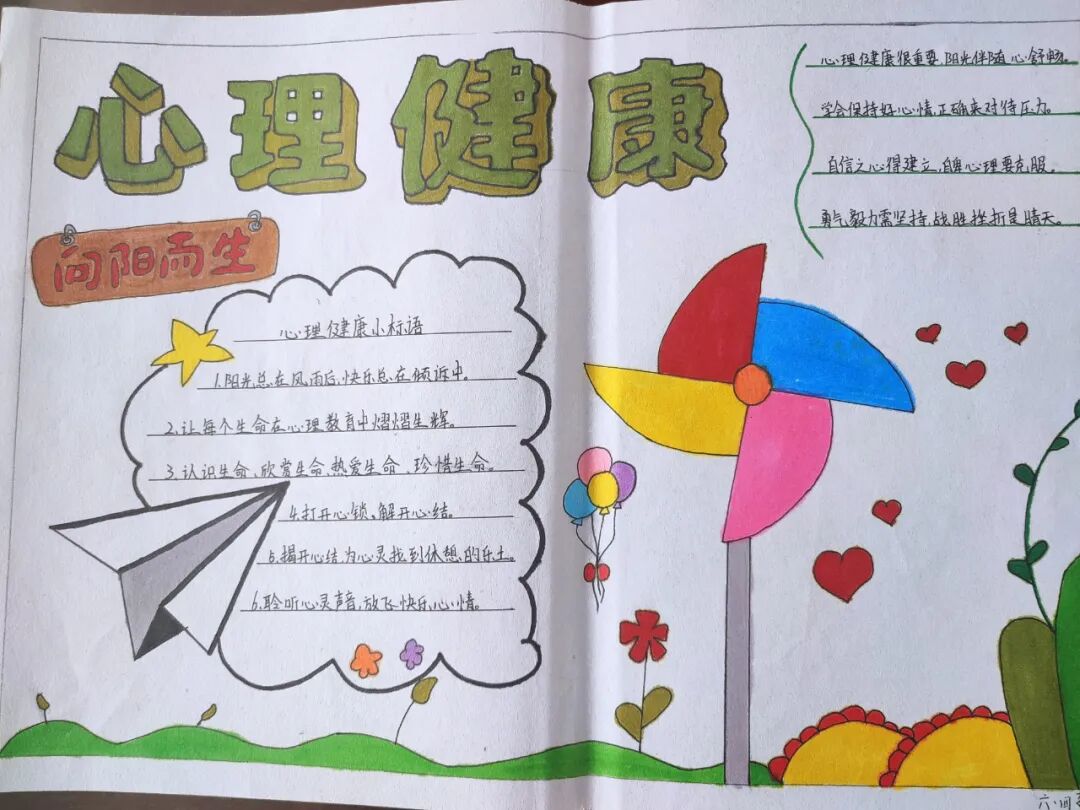 心理健康
向阳而生
心理健康小标语
1.阳光总在风雨后,快乐总在倾诉中。
2.让每个生命在心理教育中熠熠生辉。
3.认识生命、欣赏生命、热爱生命、珍惜生命。
4.打开心锁、解开心结。
5.揭开心结,为心灵找到休憩的乐土。
6.聆听心灵声音,放飞快乐心情。
心理健康很重要,阳光伴随心舒畅。
学会保持好心情,正确来对待压力。
自信之心得建立,自卑心理要克服。
勇气毅力需坚持,战胜挫折是晴天。